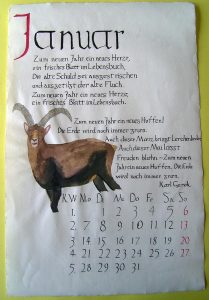 Januar
Zum neuen Jahr ein neues Herze,
ein frisches Blatt im Lebensbuch.
Die alte Schuld sei ausgestrichen
und ausgetilgt der alte Fluch.
Zum neuen Jahr ein neues Herze,
ein frisches Blatt im Lebensbuch.
Zum neuen Jahr ein neues Hoffen!
Die Erde wird noch immer grün.
Auch dieser März bringt Lerchenlieder.
Auch dieser Mai lässt
Freuden blühn – Zum neuen
Jahr ein neues Hoffen. Die Erde
wird noch immer grün.
Karl Gerok.
K.W Mo Di Mi Do Fr Sa So
1. 1 2 3 4 5 6
2. 7 8 9 10 11 12 13
3. 14 15 16 17 18 19 20
4. 21 22 23 24 25 26 27
5. 28 29 30 31